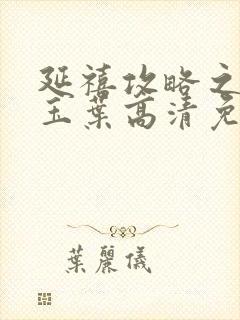 延禧攻略之
玉葉高清免
葉麗儀